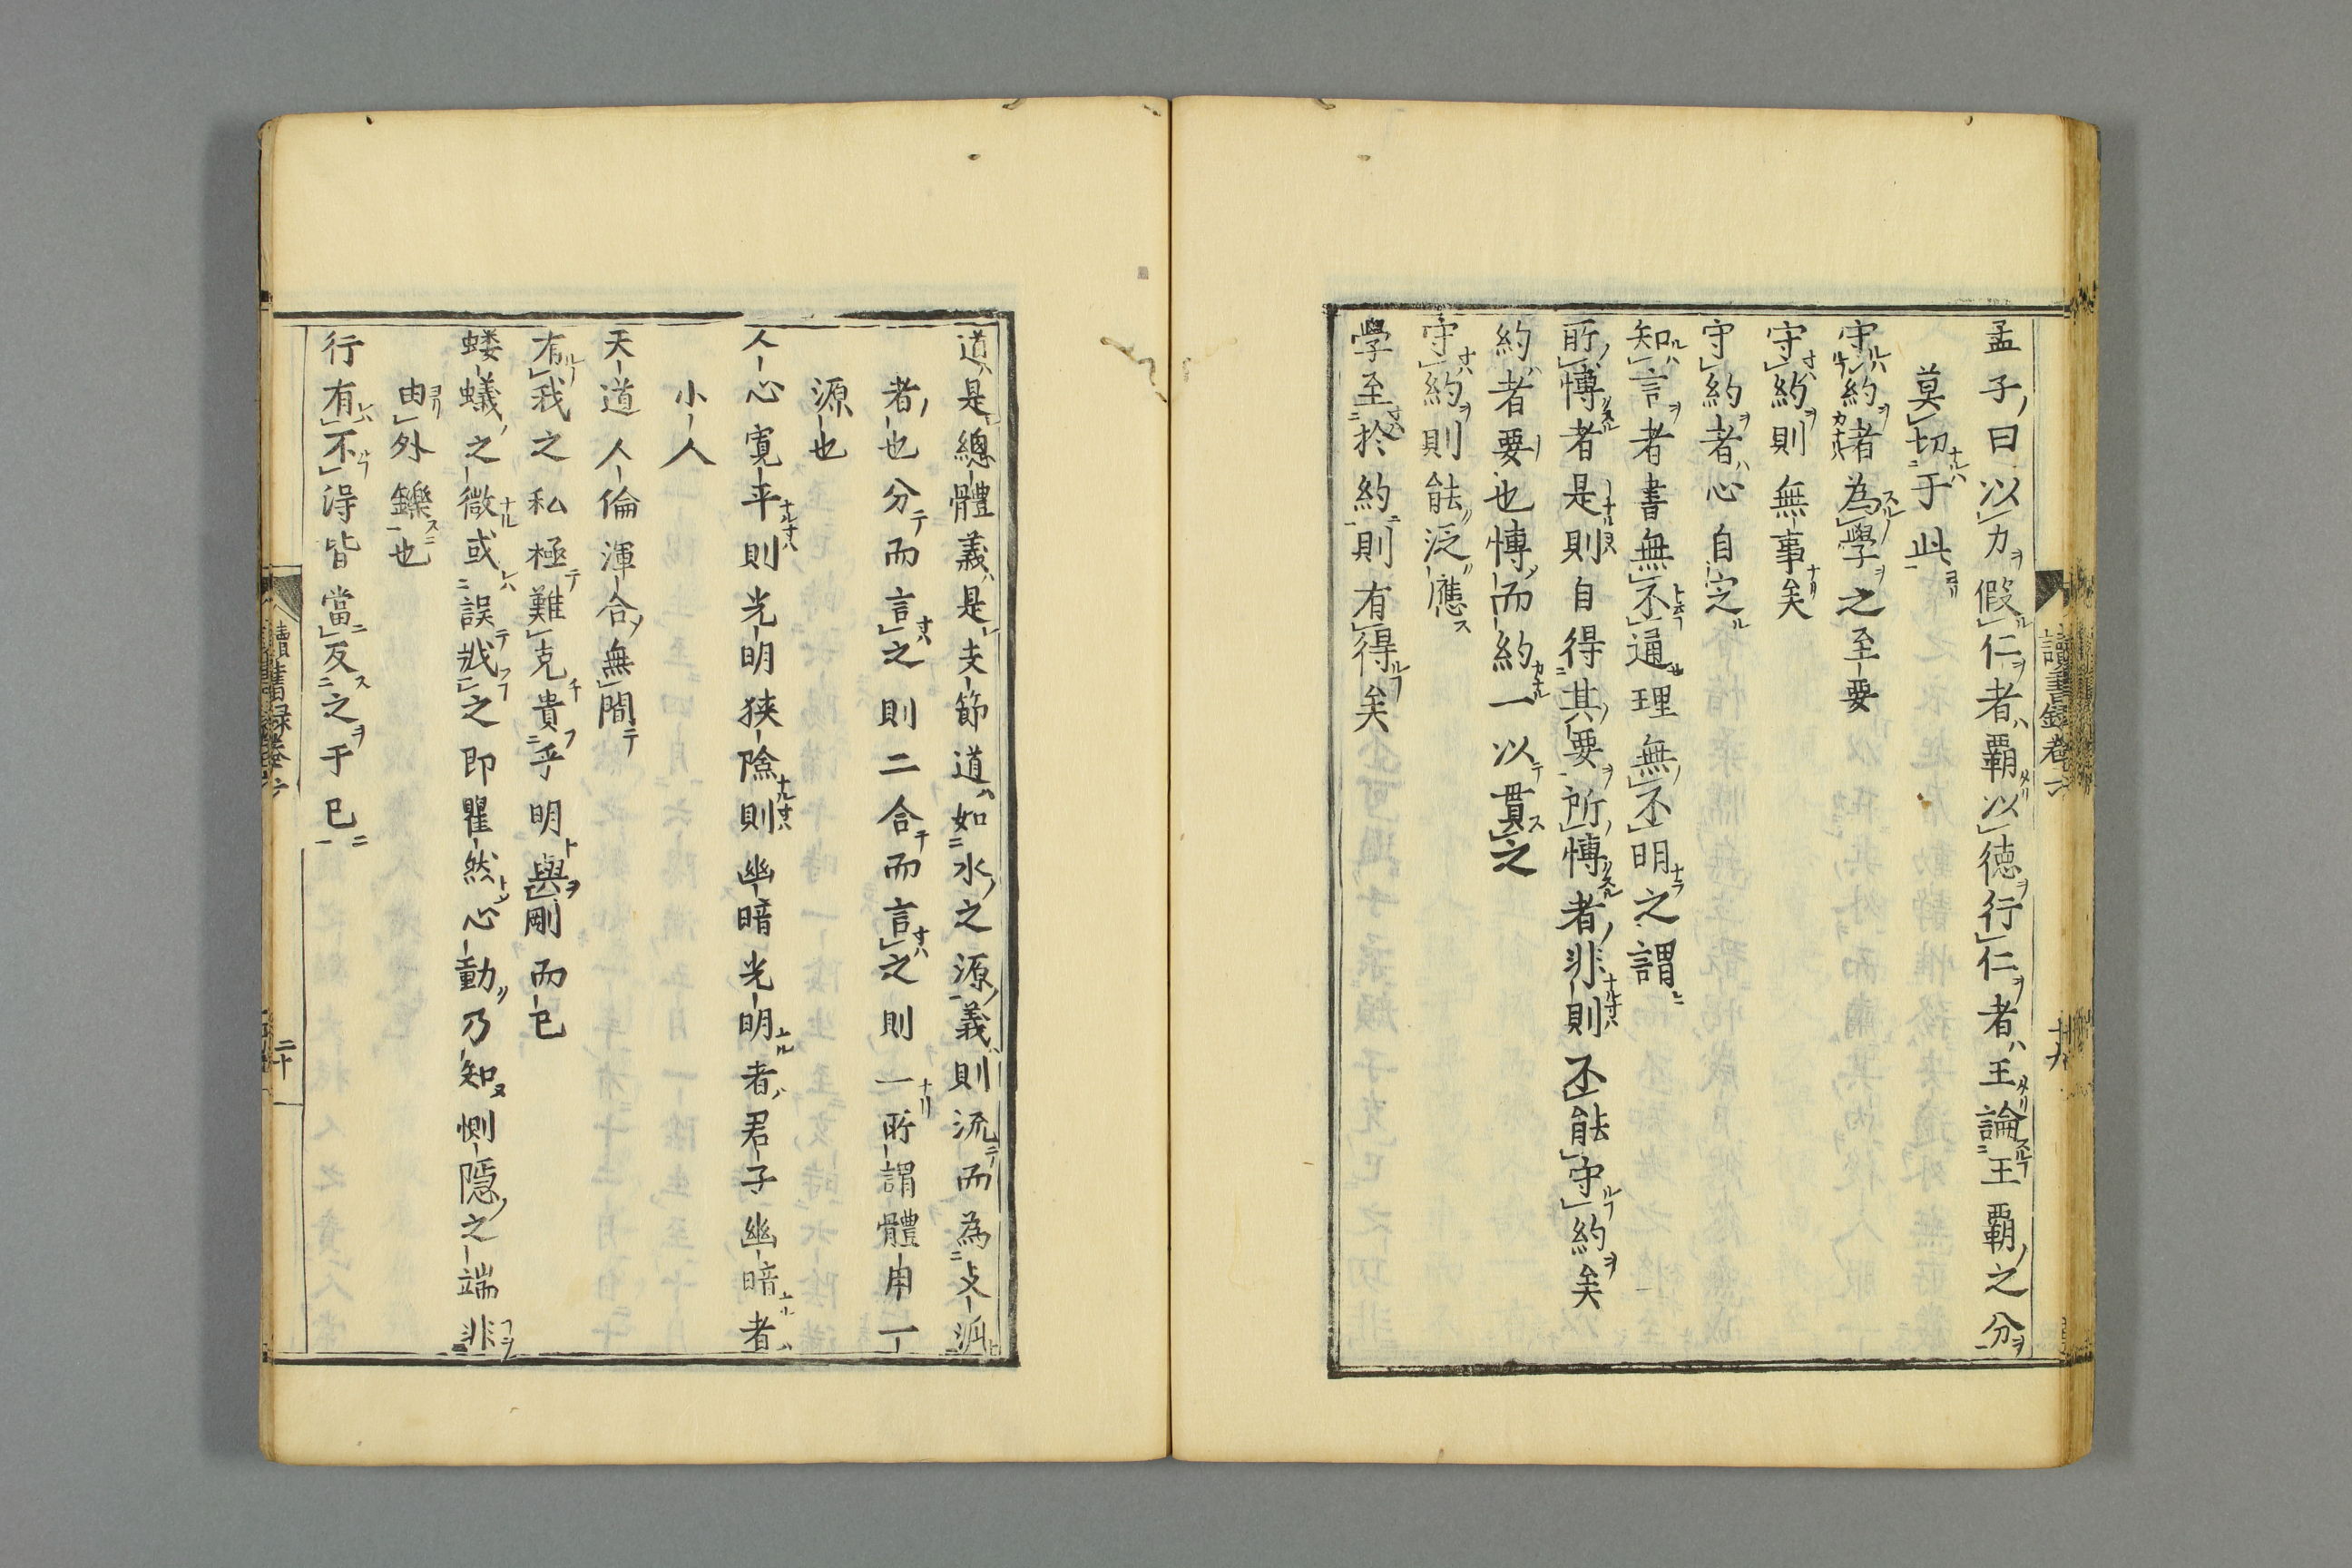 孟子曰以力假仁者覇以徳行仁者王論王覇之分
莫切于此
守約者為學之至要
守約則無事矣
守約者心自定
知言者書無不通理無不明之謂
所博者是則自得其要所博者非則不能守約矣
約者要也博而約一以貫之
守約則能泛應
學至於約則有得矣
讀書録卷六
十九
道是總體義是支節道如水之源義則流而為支派
者也分而言之則二合而言之則一所謂體用一
源也
人心寛平則光明狭險則幽暗光明者君子幽暗者
小人
天道人倫渾合無間
有我之私極難克貴乎明與剛而已
螻蟻之微或誤戕之即瞿然心動乃知惻隱之端非
由外鑠也
行有不得皆當反之于已
讀書録卷六
二十